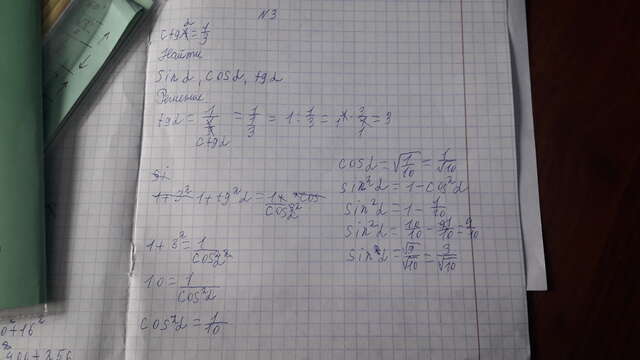 N3
ctgα = 1/3
Найти
sinα, cosα, tgα
Решение
tgα = 1/ctgα = 1/1/3 = 1 : 1/3 = 1 · 3/1 = 3
1 + tg²α = 1/cos²α
1 + 3² = 1/cos²α
10 = 1/cos²α
cos²α = 1/10
cosα = √1/10 = 1/√10
sin²α = 1 - cos²α
sin²α = 1 - 1/10
sin²α = 10/10 - 1/10 = 9/10
sinα = √9/√10 = 3/√10